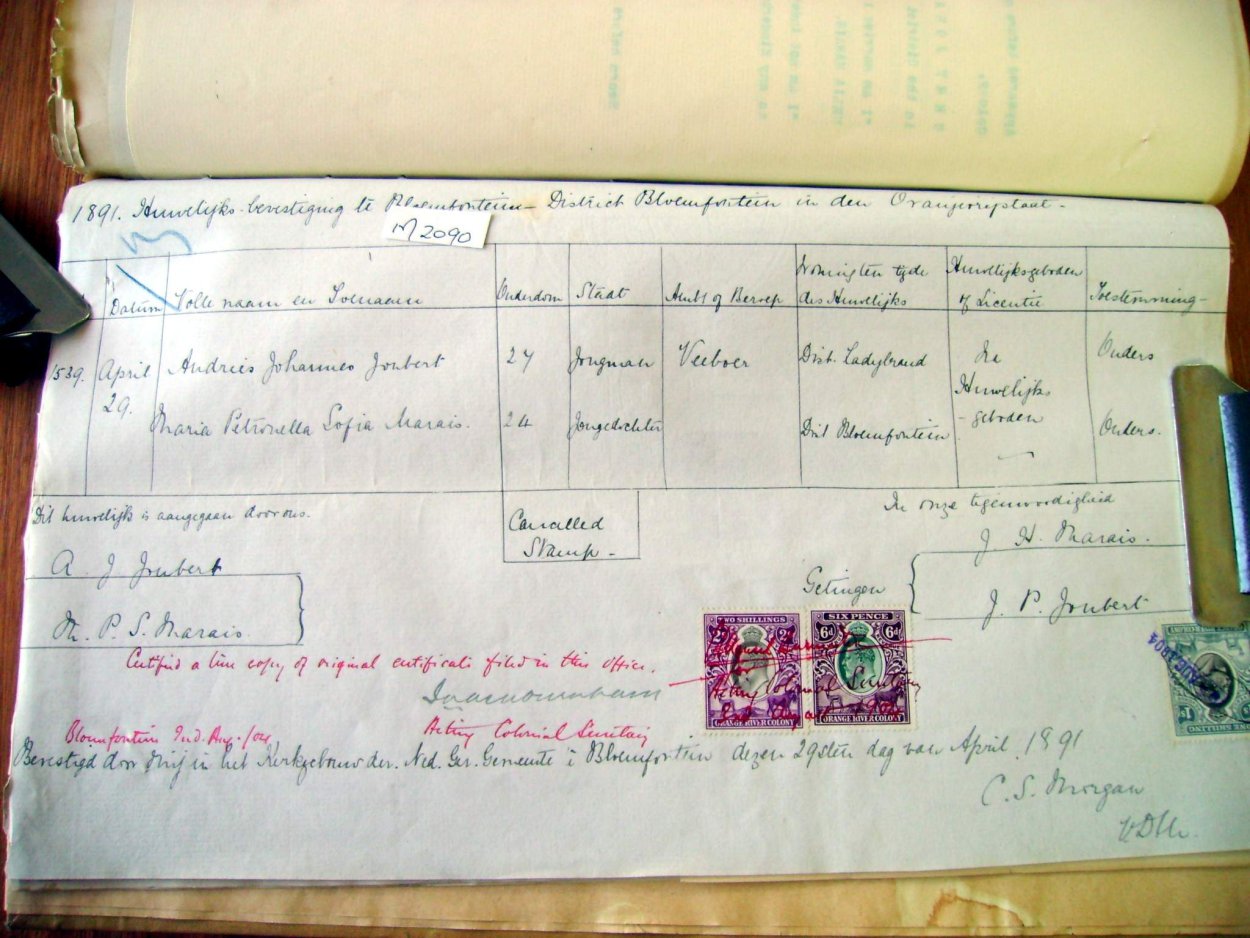 1891. Huwelijks-bevestiging te Bloemfontein District Bloemfontein in den Oranjevrystaat -
M2090
13
Datum Volle naam en Ouderdom Staat Ambt of Beroep Woning ten tyde des Huwelijks Huwelijksgeboden of Licentie Toestemming
1539. April 29. Andries Johannes Joubert 27 Jongman Veeboer Dist. Ladybrand Na Huwelijks-geboden Ouders
Maria Petronella Sofia Marais. 24 Jongedochter Dist Bloemfontein Ouders.
Dit huwelijk is aangegaan door ons.
A. J Joubert
M. P. S. Marais.
Cancelled Stamp -
In onze tegenwoordigheid
J. H. Marais.
Getuigen
J. P. Joubert
Certified a true copy of original certificate filed in this office.
Acting Colonial Secretary
Bloemfontein 2nd Aug. /04
TWO SHILLINGS
ORANGE RIVER COLONY
SIX PENCE
6d 6d
ORANGE RIVER COLONY
Acting Colonial Secretary
AUG 1904
Bevestigd door mij in het Kerkgebouw der. Ned. Ger. Gemeente i Bloemfontein dezen 29sten dag van April 1891
C. S. Morgan
VDM.